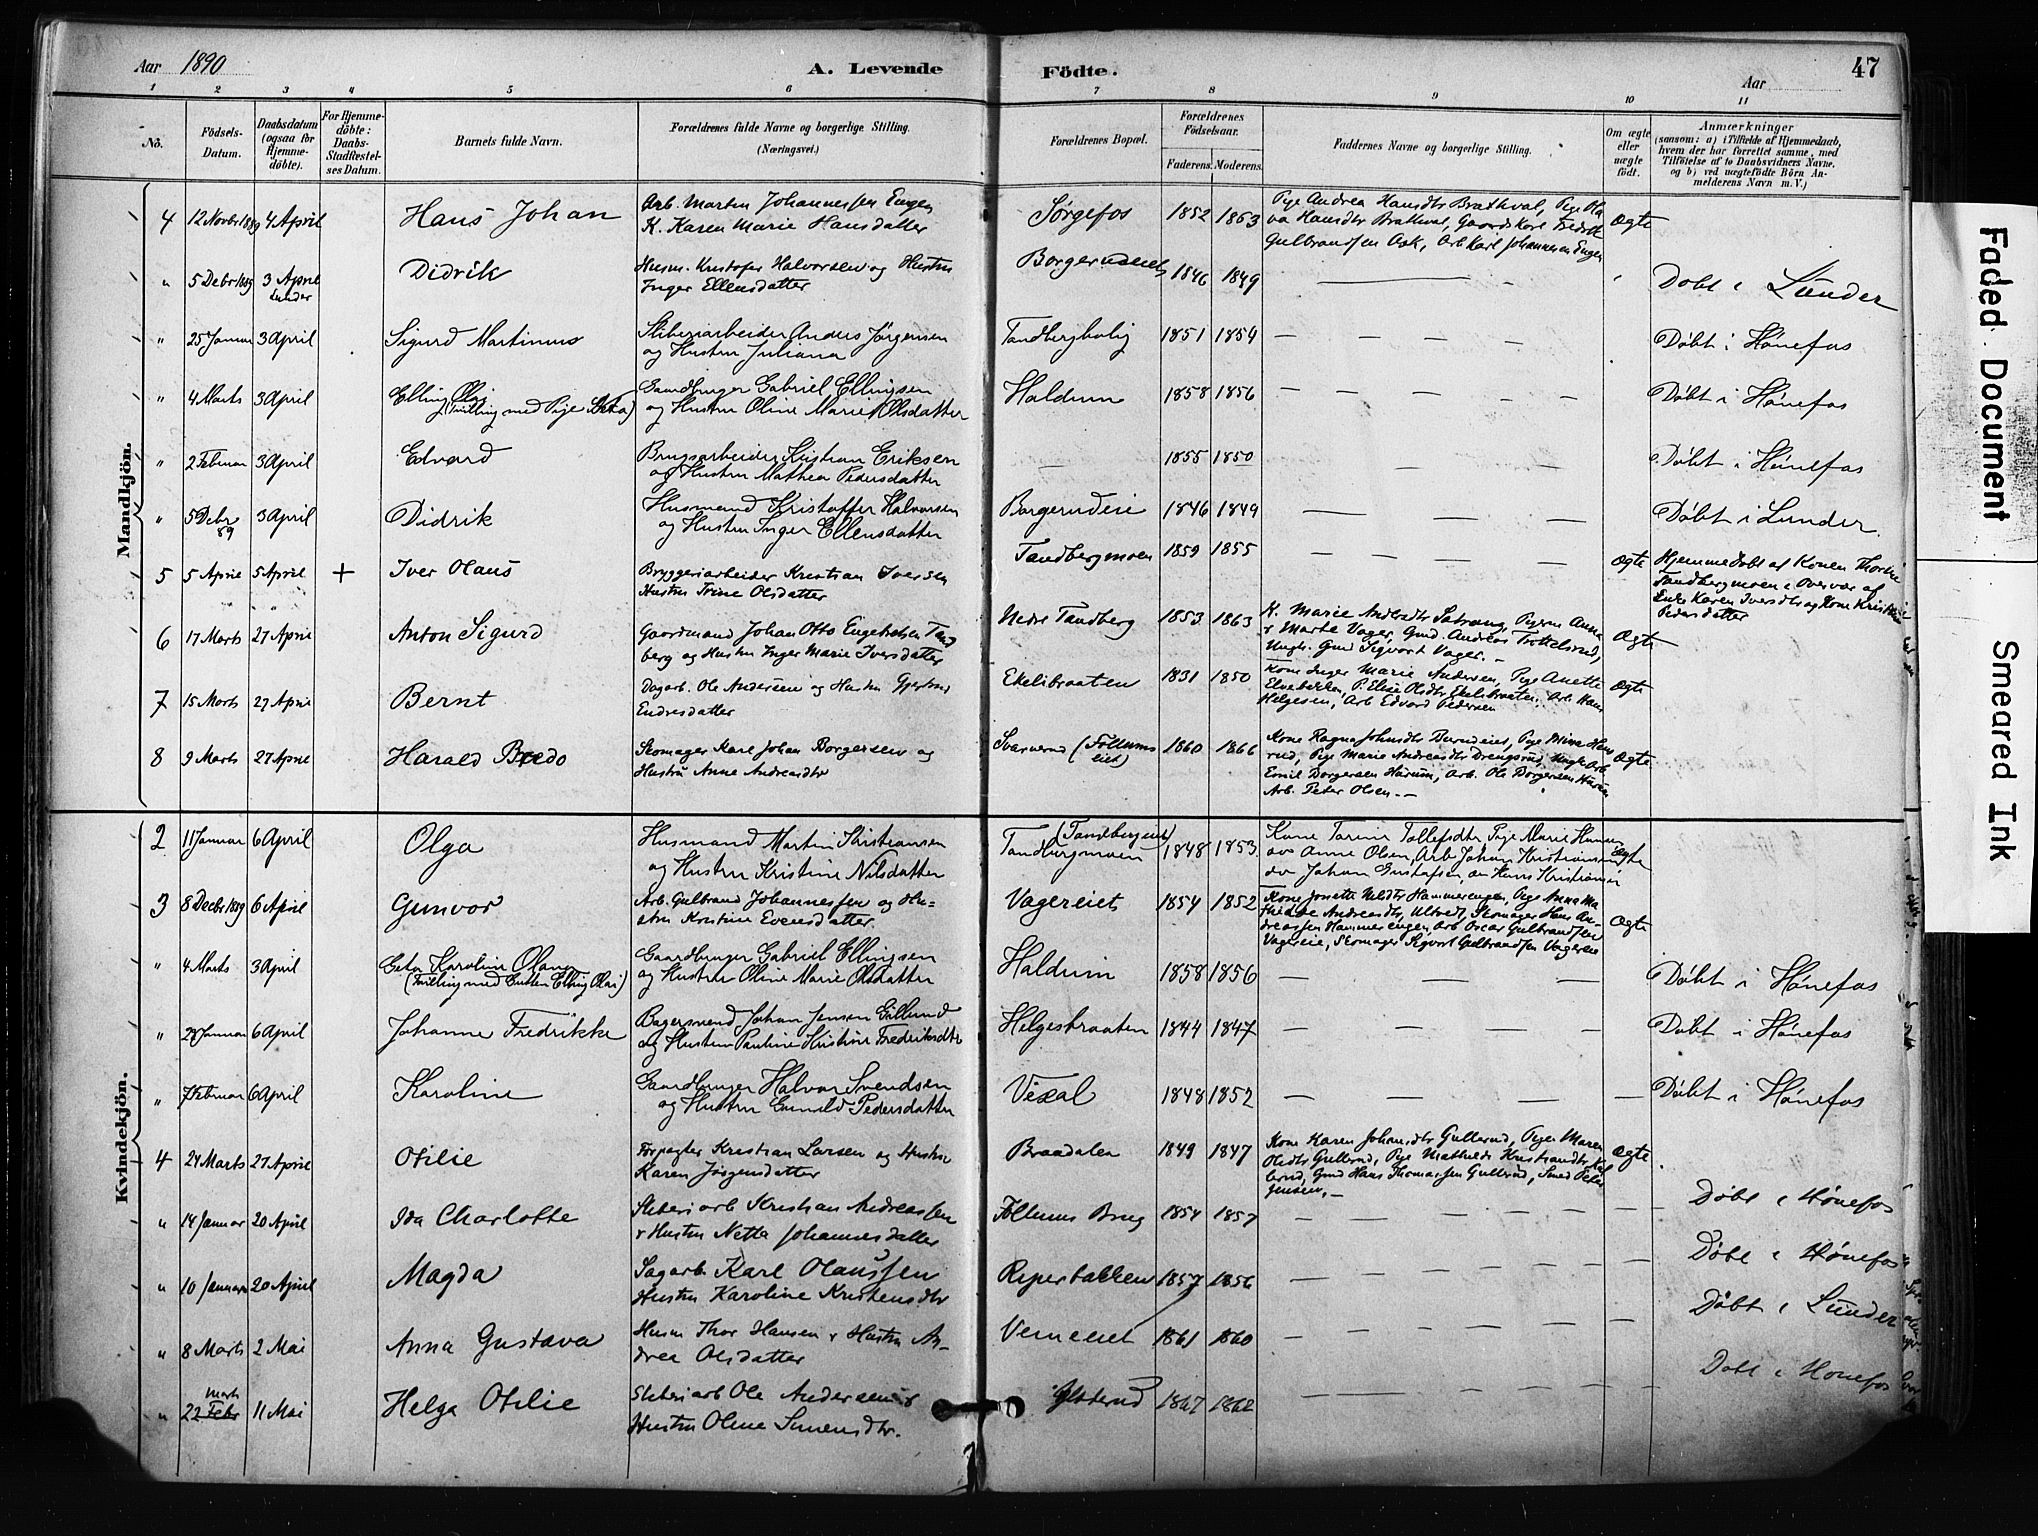 Aar 1890
A. Levende
Födte.
Aar
47
1 2 3 4 5 6 7 8 9 10 11
No.
Födsels-
Datum.
Daabsdatum
(ogsaa for
Hjemme-
döbte).
For Hjemme-
döbte:
Daabs-
Stadfæstel-
ses Datum.
Barnets fulde Navn.
Forældrenes fulde Navne og borgerlige Stilling.
(Næringsvei.)
Forældrenes Bopæl.
Forældrenes
Födselsaar.
Faderens. Moderens.
Faddernes Navne og borgerlige Stilling.
Om ægte
eller
uægte
födt.
Anmærkninger
(saasom: a) i Tilfælde af Hjemmedaab,
hvem der har forrettet samme, med
Tilföielse af to Daabsvidners Navne,
og b) ved uægtefödte Börn An-
melderens Navn m. V.)
Mandkjön.
4 12 Novbr 1889 4 April Hans Johan
Arb. Martin Johannessen Engen
K. Karen Marie Hansdatter
Sørgefos 1852 1863
Pige Andrea Hansdtr Brathval, Pige
va Hansdtr Brathval, Gaardskarl Fredrik
Gulbrandsen Ask, Arb Karl Johannesen Engen
Ægte
" 5 Debr 1889 3 April
Lunder
Didrik
Husm. Kristofer Halvorsen og Hustru
Inger Ellensdatter
1846 1849
Døbt i Lunder
" 25 Januar 3 April Sigurd Martinus
Sliberiarbeider Anders Jørgensen
og Hustru Juliana
Tandbergbolig 1851 1854 Døbt i Hønefos
" 4 Marts 3 April Elling Olai
(Tvilling med Pige )
Gaardbruger Gabriel Ellingsen
og Hustru Oline Marie Olsdatter
Haldum 1858 1856 Døbt i Hønefos
" 2 Februar 3 April Edvard
Brugsarbeider Kristian Eriksen
og Hustru Mathea Pedersdatter
— 1855 1850 Døbt i Hønefos
" 5 Debr 89 3 April Didrik
Husmand Kristoffer Halvorsen
og Hustru Inger Ellensdatter
Borgerudeie 1846 1849 Døbt i Lunder
5 5 April 5 April + Iver Olaus
Bryggeriarbeider Kristian Iversen
Hustru Trine Olsdatter
Tandbergmoen 1859 1855 Ægte
Hjemmedøbt af Konen Thorine
Tandbergmoen i Overvær af
Enke Karen Iversdtr og Kone Kristine
Pedersdatter
6 17 Marts 27 April Anton Sigurd
Gaardmand Johan Otto Engebretsen Tand
berg og Hustru Inger Marie Iversdatter
Nedre Tandberg 1853 1863
K. Marie Andersdtr Anna
& Marte Vager, Gmd. Andreas
Ungk. Gmd Sigvart Vager. —
Ægte
7 15 Marts 27 April Bernt
Dagarb. Ole Andersen og Hustru
Endresdatter
Ekelibraaten 1831 1850
Kone Inger Marie Andersen, Pige Anette
Elvebakken, P. Elise Olsdtr Ekelibraaten, Arb. Hans
Helgesen, Arb Edvard Pedersen
Ægte
8 9 Marts 27 April Harald Bredo
Skomager Karl Johan Borgersen og
Hustru Anne Andreasdtr
(Follums
eiet) 1860 1866
Kone Ragna Pige Mina Hans
rud, Pige Marie Andreasdtr Arb.
Emil Borgersen Arb. Ole Borgersen
Arb. Peter Olsen. —
Ægte
Kvindekjön.
2 11 Januar 6 April Olga
Husmand Martin Kristiansen
og Hustru Kristine Nilsdatter
(Tandbergeiet)
Tandbergmoen 1848 1853
Kone Torine Tollefsdtr Pige Marie
Anne Olsen, Arb Johan Kristiansen
Johan Gustafsen, Hans Kristiansen
Ægte
3 8 Decbr 1889 6 April Gunvor
Arb. Gulbrand Johannessen og Hu=
stru Kristine Evensdatter.
Vagereiet 1854 1852
Kone Jonette Hammerengen, Pige Anna Ma
thilde Andreasdtr, Skomager Hans An-
dreassen Hammerengen, Arb Oscar Gulbrandsen
Vagereie, Skomager Sigvart Gulbrandsen Vagereie
Ægte
" 4 Marts 3 April Karoline
(Tvilling med Gutten Elling Olai)
Gaardbruger Gabriel Ellingsen
og Hustru Oline Marie Olsdatter
Haldum 1858 1856 Døbt i Hønefos
" 6 April Johanne Fredrikke
Bagersvend Johan Jensen Gillund
og Hustru Pauline Kristine Fredriksdtr
Helgesbraaten 1844 1847 Døbt i Hønefos
" 7 Februar 6 April Karoline
Gaardbruger Halvor Svendsen
og Hustru Gunild Pedersdatter
Vexal 1848 1852 Døbt i Hønefos
4 24 Marts 27 April Otilie
Forpagter Kristian Larsen og Hustru
Karen Jørgensdatter
Braadalen 1849 1847
Kone Karen Johansdtr Gullerud, Pigen Maren
Olsdtr Gullerud, Pige Mathilde Kristiansdtr
Gmd Hans Thomassen Gullerud, Smed Peter
Jensen. —
Ægte
" 14 Januar 20 April Ida Charlotte
Sliberiarb Kristian Andreassen
& Hustru Netta Johannesdatter
Follums Brug 1854 1857 Døbt i Hønefos
" 10 Januar 20 April Magda
Sagarb. Karl Olaussen
Hustru Karoline Kristensdtr
1857 1856 Døbt i Hønefos
" 8 Marts 2 Mai Anna Gustava
Husm Thor Hansen & Hustru An-
drea Olsdatter
1861 1860 Døbt i Lunder
" Marts
22 Febr 11 Mai Helga Otilie
Sliberiarb Ole Andersen &
Hustru Oline Simensdtr.
1867 1862 Døbt i Hønefos
Faded Document
Smeared Ink